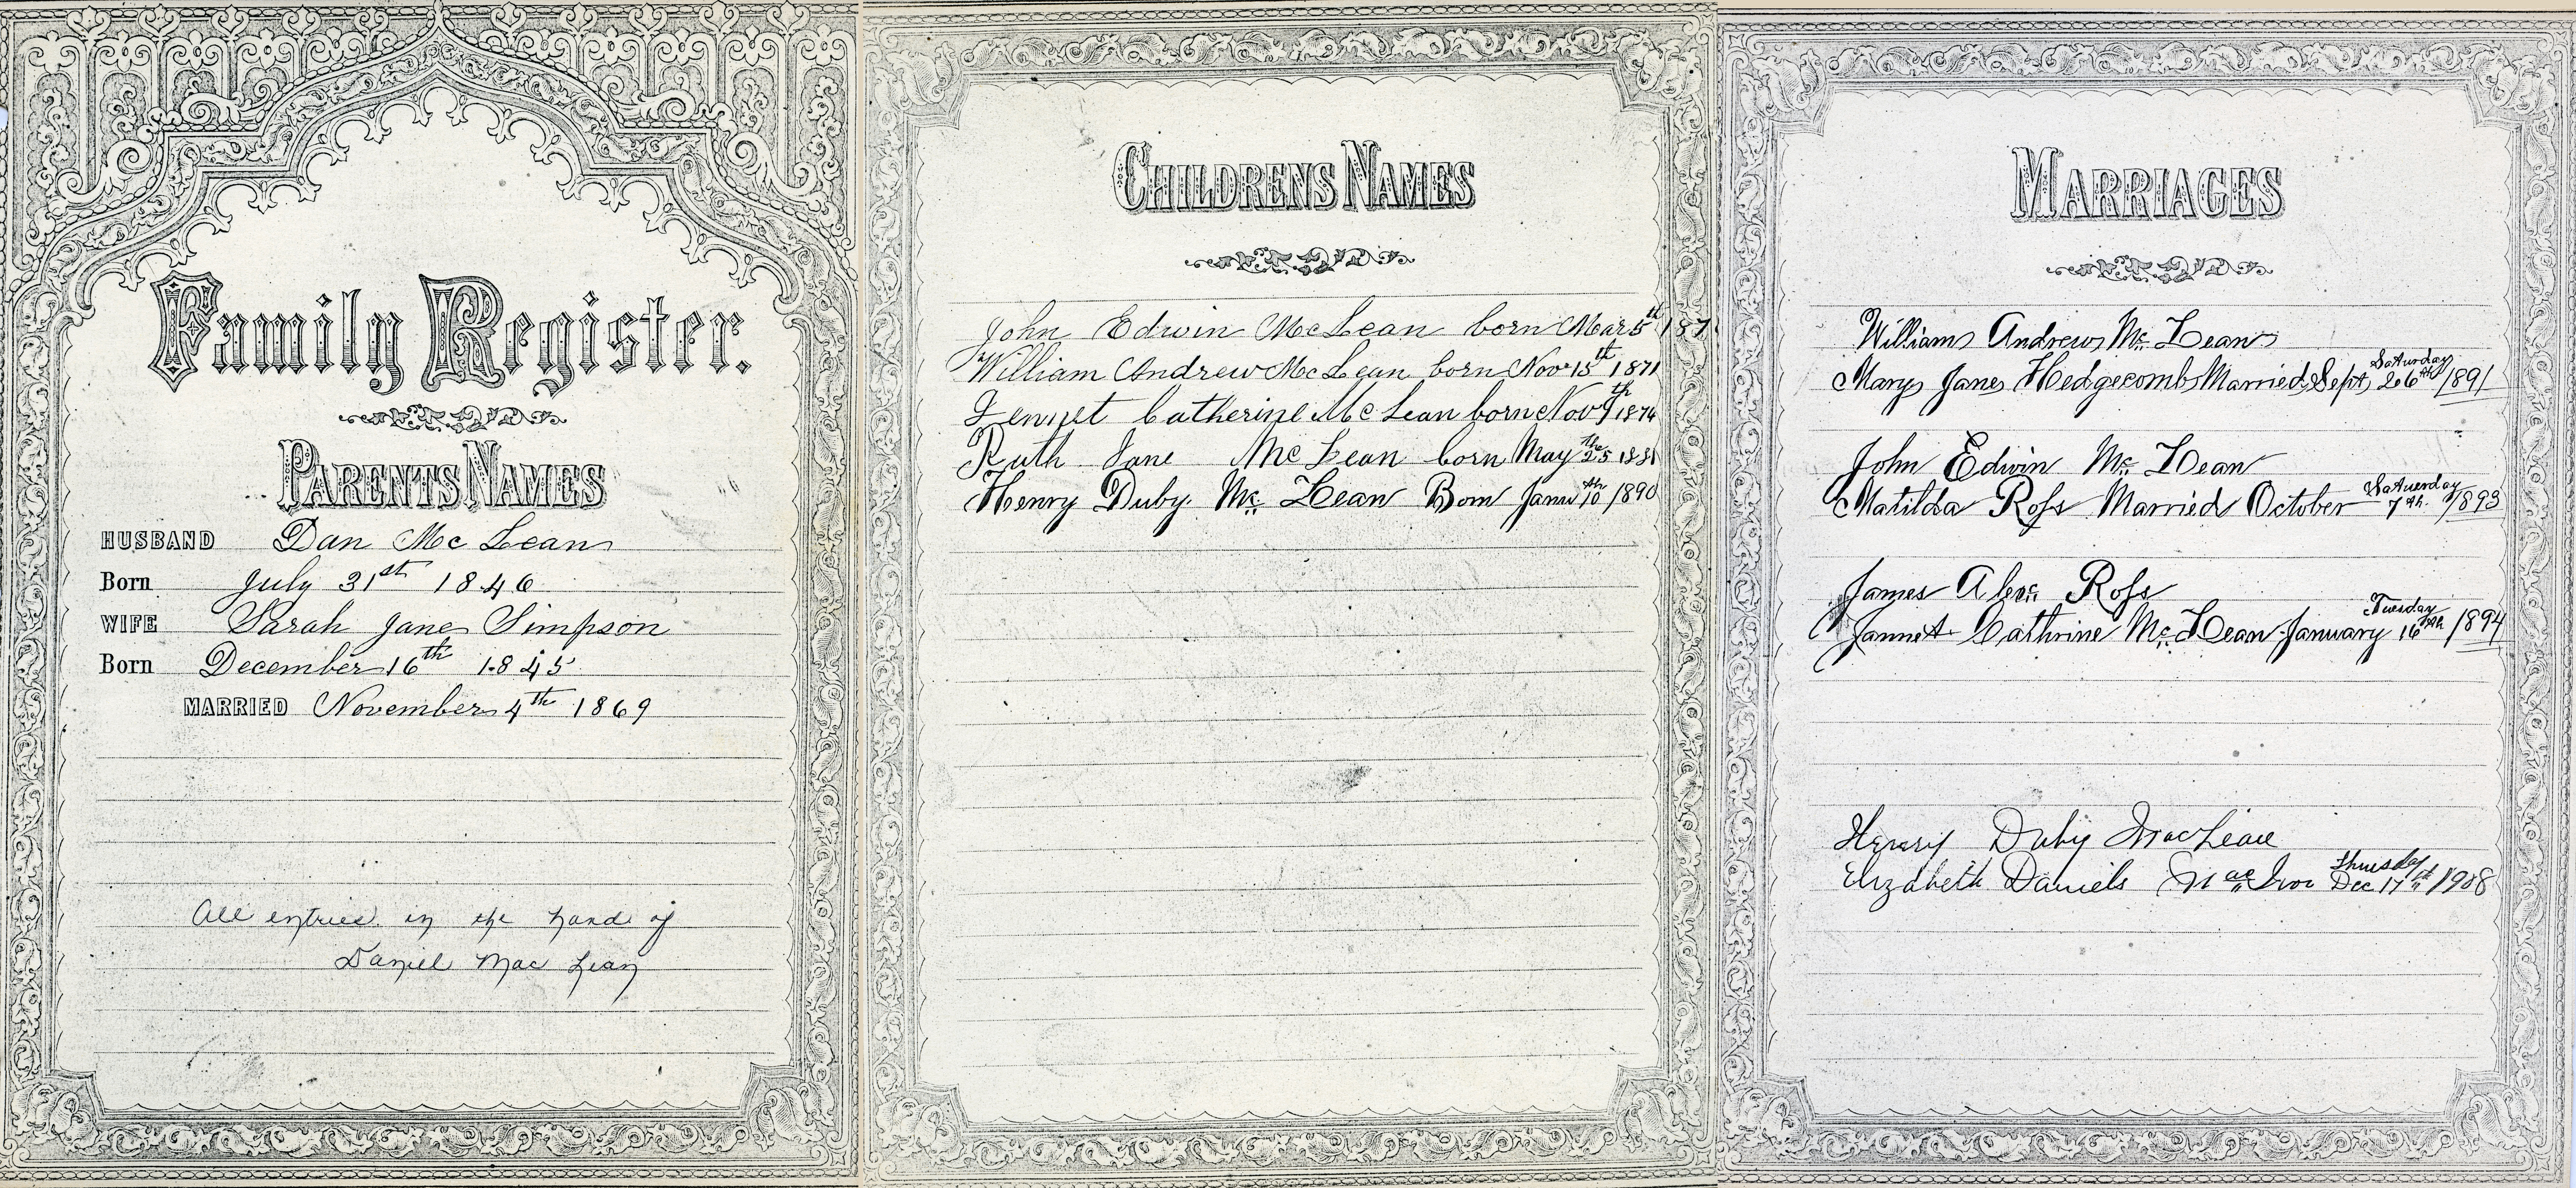 Family Register.
PARENTS NAMES
HUSBAND Dan Mc Lean
Born July 31st 1846
WIFE Sarah Jane Simpson
Born December 16th 1845
MARRIED November 4th 1869
All entries in the hand of
Daniel Mac Lean
CHILDRENS NAMES
John Edwin McLean born Mar 5th 187
William Andrew McLean born Nov 15th 1871
Jennet Catherine McLean born Nov 9th 1874
Ruth Jane McLean born May the 25 1881
Henry Duby Mc Lean Born Janu 10th 1890
MARRIAGES
William Andrew Mc Lean
Mary Jane Hedgecomb Married Sept Saturday 26th 1891
John Edwin Mc Lean
Matilda Ross Married October Satuerday 7th 1893
James Alex Ross
Jannet Cathrine McLean January Tuesday 16th 1894
Henry Duby MacLean
Elizabeth Daniels Mac Thursday Dec 17th 1908